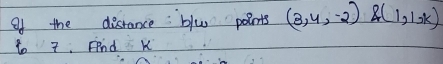 If the distance b/w points (3,4,-2) &(1,1,k)
is 7. Find K